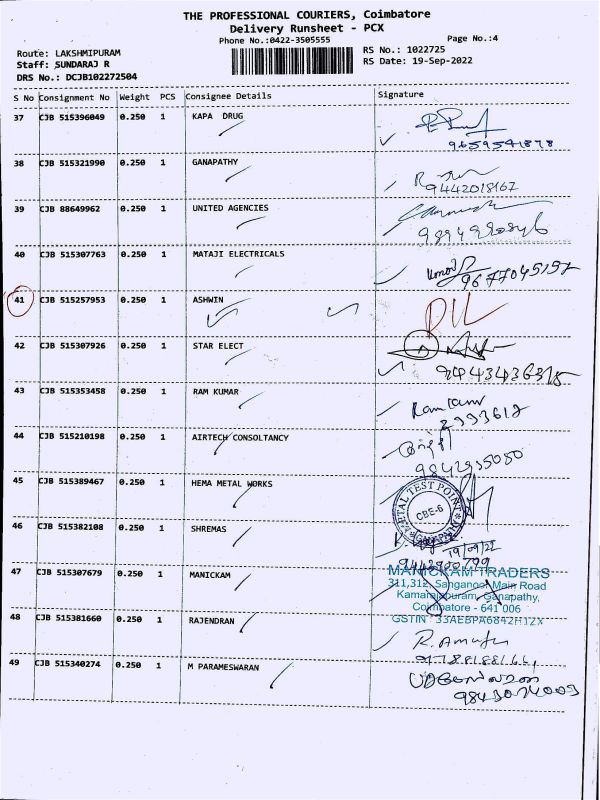 THE PROFESSIONAL COURIERS, Coimbatore
Delivery Runsheet - PCX
Phone No.:0422-3505555
Page No.:4
Route: LAKSHMIPURAM
RS No.: 1022725
Staff: SUNDARAJ R
RS Date: 19-Sep-2022
DRS No.: DCJB102272504
S No Consignment No Weight PCS Consignee Details Signature
37 CJB 515396049 0.250 1 KAPA DRUG
9659541878
38 CJB 515321990 0.250 1 GANAPATHY
9442018162
39 CJB 88649962 0.250 1 UNITED AGENCIES
40 CJB 515307763 0.250 1 MATAJI ELECTRICALS
9677045157
41 CJB 515257953 0.250 1 ASHWIN
D/L
42 CJB 515307926 0.250 1 STAR ELECT
43 CJB 515353458 0.250 1 RAM KUMAR
Ram Kumar
44 CJB 515210198 0.250 1 AIRTECH CONSOLTANCY
9842935050
45 CJB 515389467 0.250 1 HEMA METAL WORKS
METAL TEST POINT
CBE-6
46 CJB 515382108 0.250 1 SHREMAS
19/09/22
47 CJB 515307679 0.250 1 MANICKAM
MANICKAM TRADERS
311,312, Sanganoor Main Road
Kamarajapuram, Ganapathy,
Coimbatore - 641 006
GSTIN : 33AEBPA6842H1ZX
48 CJB 515381660 0.250 1 RAJENDRAN
49 CJB 515340274 0.250 1 M PARAMESWARAN